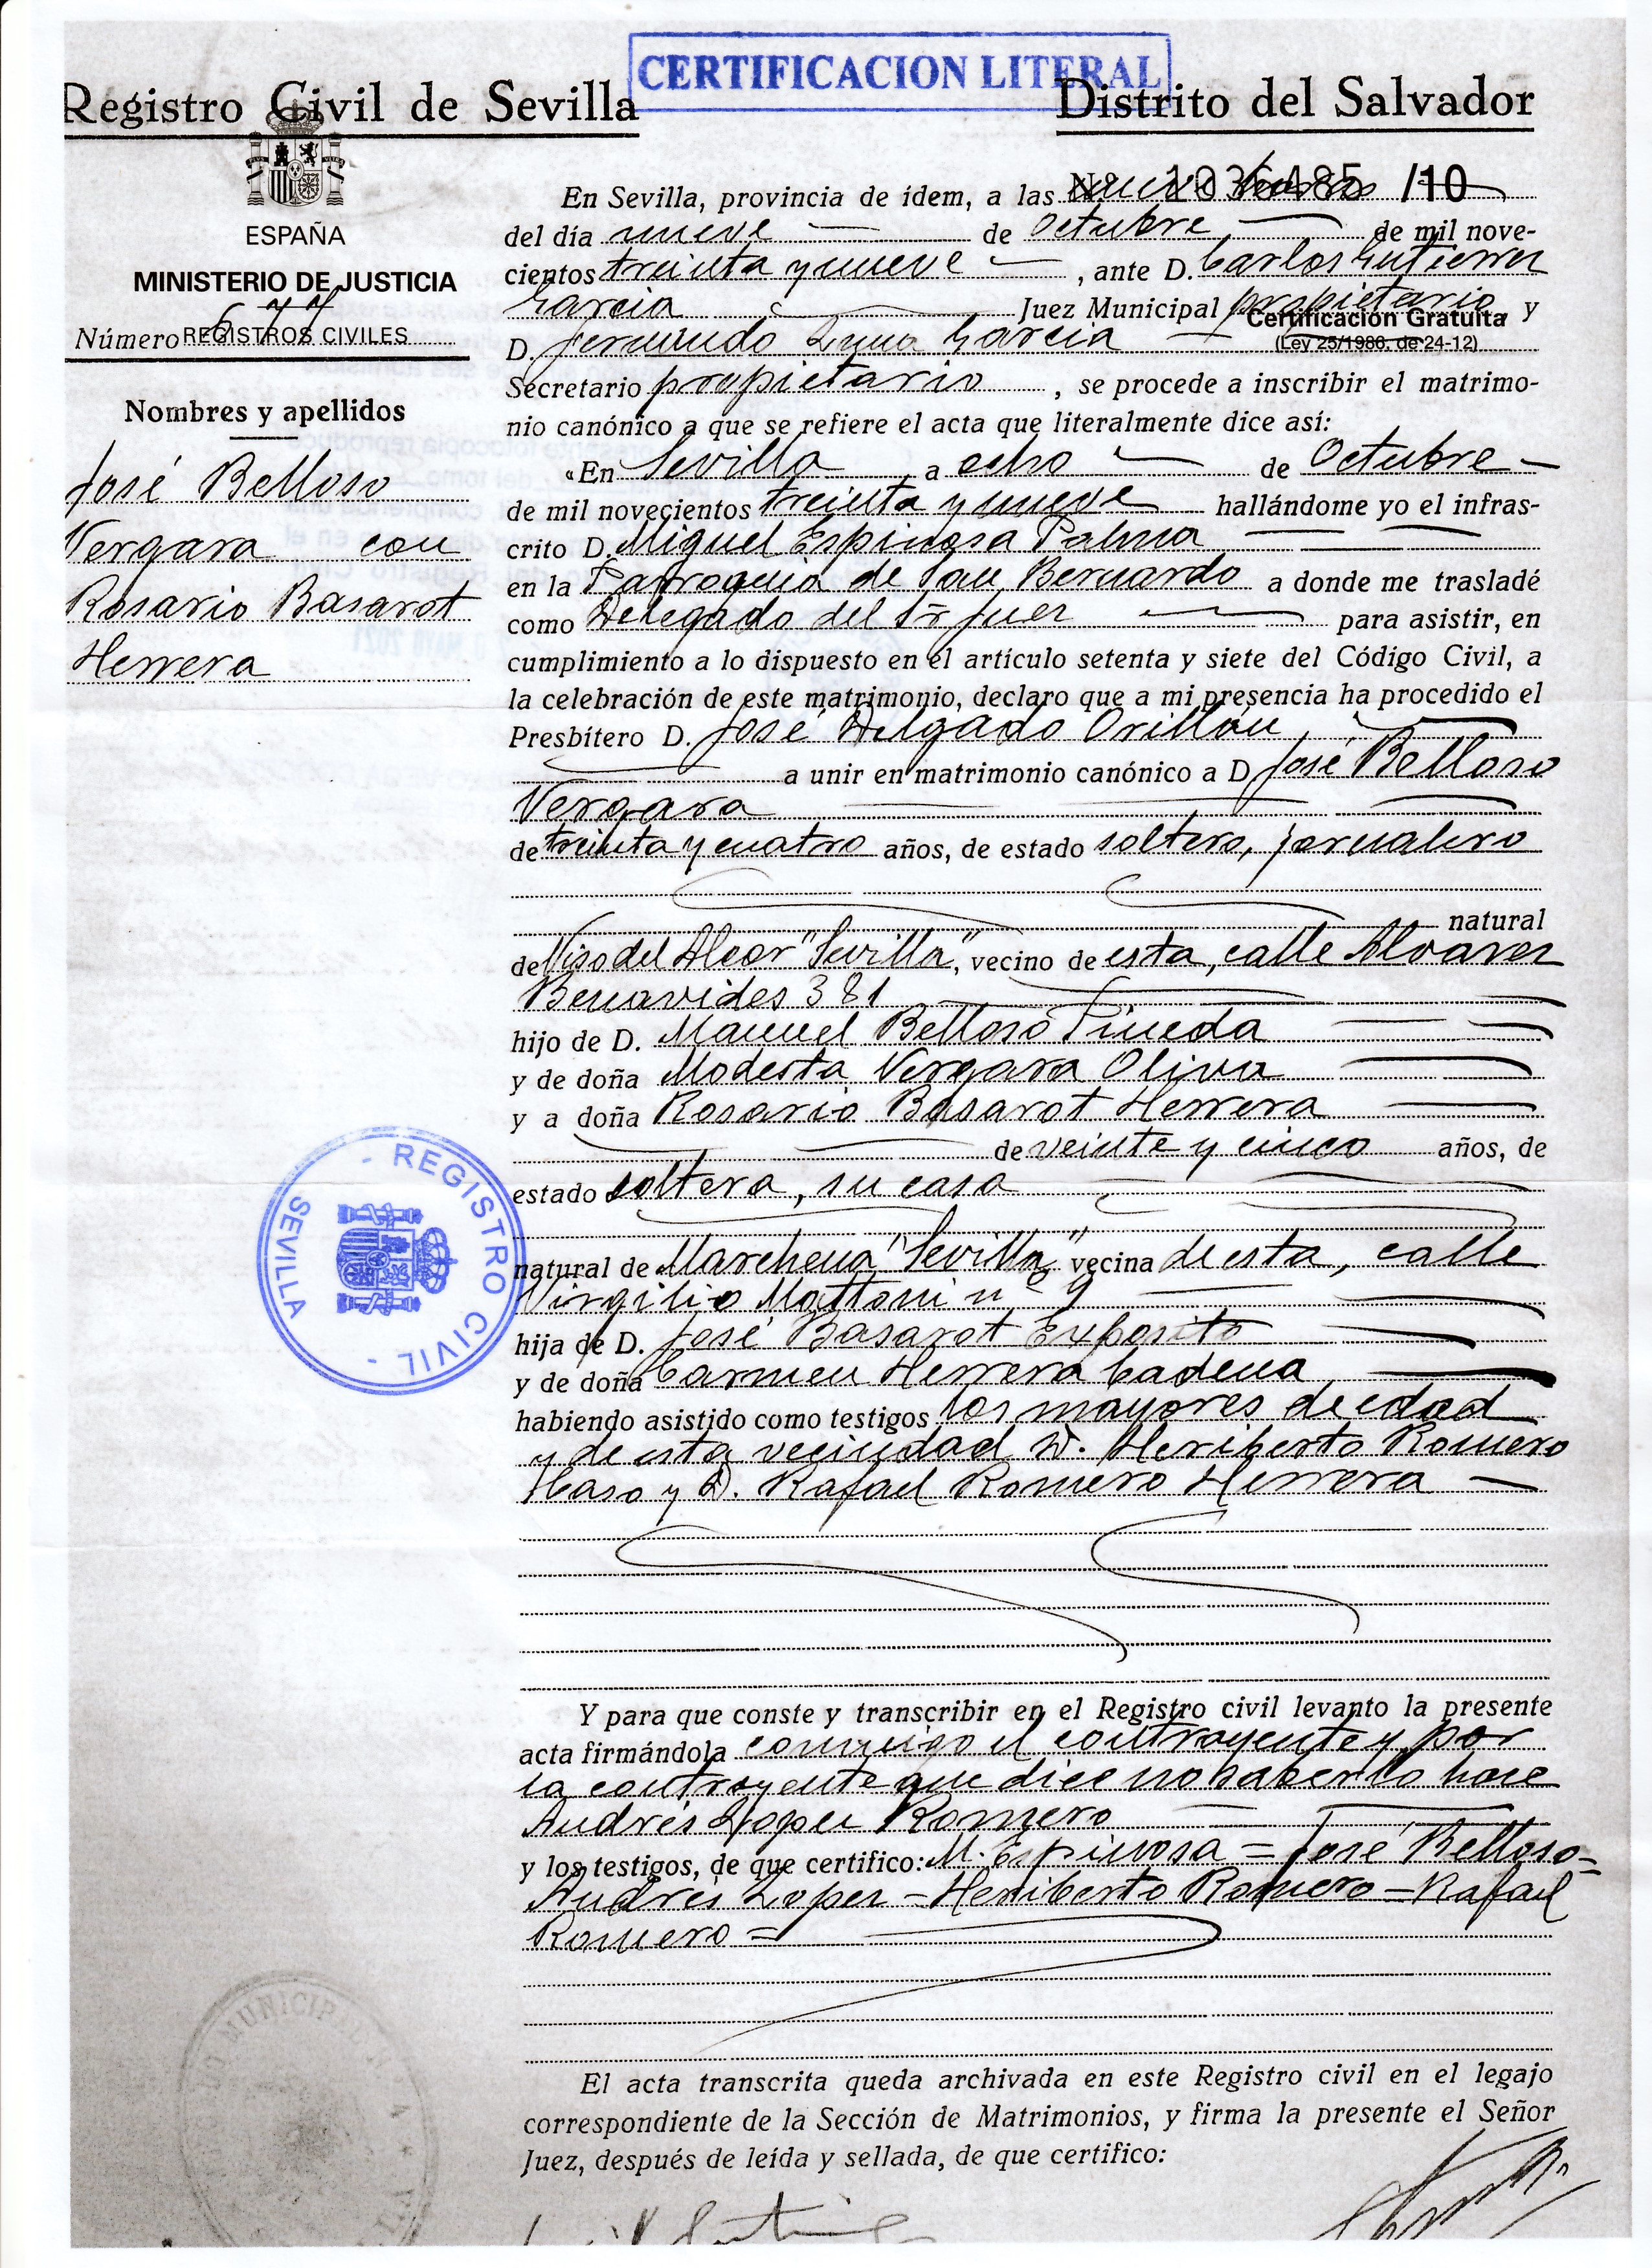 CERTIFICACION LITERAL
Registro Civil de Sevilla
Distrito del Salvador
ESPAÑA
MINISTERIO DE JUSTICIA
REGISTROS CIVILES
Número 677
Nº 1036485 /10
Certificación Gratuita
(Ley 25/1986, de 24-12)
Nombres y apellidos
José Belloso
Vergara con
Rosario Basarot
Herrera
En Sevilla, provincia de ídem, a las nueve horas
del día nueve de Octubre de mil nove-
cientos treinta y nueve, ante D. Carlos Gutierrez
García Juez Municipal propietario, y
D. Fernando García
Secretario propietario, se procede a inscribir el matrimo-
nio canónico a que se refiere el acta que literalmente dice así:
«En Sevilla a ocho de Octubre
de mil novecientos treinta y nueve hallándome yo el infras-
crito D. Miguel Espinosa Palma
en la Parroquia de San Bernardo a donde me trasladé
como Delegado del Sr Juez para asistir, en
cumplimiento a lo dispuesto en el artículo setenta y siete del Código Civil, a
la celebración de este matrimonio, declaro que a mi presencia ha procedido el
Presbítero D. José Delgado Orillán
a unir en matrimonio canónico a D José Belloso
Vergara
de treinta y cuatro años, de estado soltero, jornalero
natural
de Viso del Alcor "Sevilla", vecino de esta, calle Alvarez
Benavides 381
hijo de D. Manuel Belloso Pineda
y de doña Modesta Vergara Oliva
y a doña Rosario Basarot Herrera
de veinte y cinco años, de
estado soltera, su casa
natural de Marchena "Sevilla" vecina de esta, calle
Virgilio Mattoni nº 9
hija de D. José Basarot Exposito
y de doña Carmen Herrera Cadena
habiendo asistido como testigos los mayores de edad
y de esta vecindad D. Heriberto Romero
Haso y D. Rafael Romero Herrera
Y para que conste y transcribir en el Registro civil levanto la presente
acta firmándola conmigo el contrayente y por
la contrayente que dice no saberlo hace
Andrés Lopez Romero
y los testigos, de que certifico: M. Espinosa = José Belloso =
Andrés Lopez = Heriberto Romero = Rafael
Romero =
REGISTRO CIVIL - SEVILLA -
El acta transcrita queda archivada en este Registro civil en el legajo
correspondiente de la Sección de Matrimonios, y firma la presente el Señor
Juez, después de leída y sellada, de que certifico:
MUNICIPAL